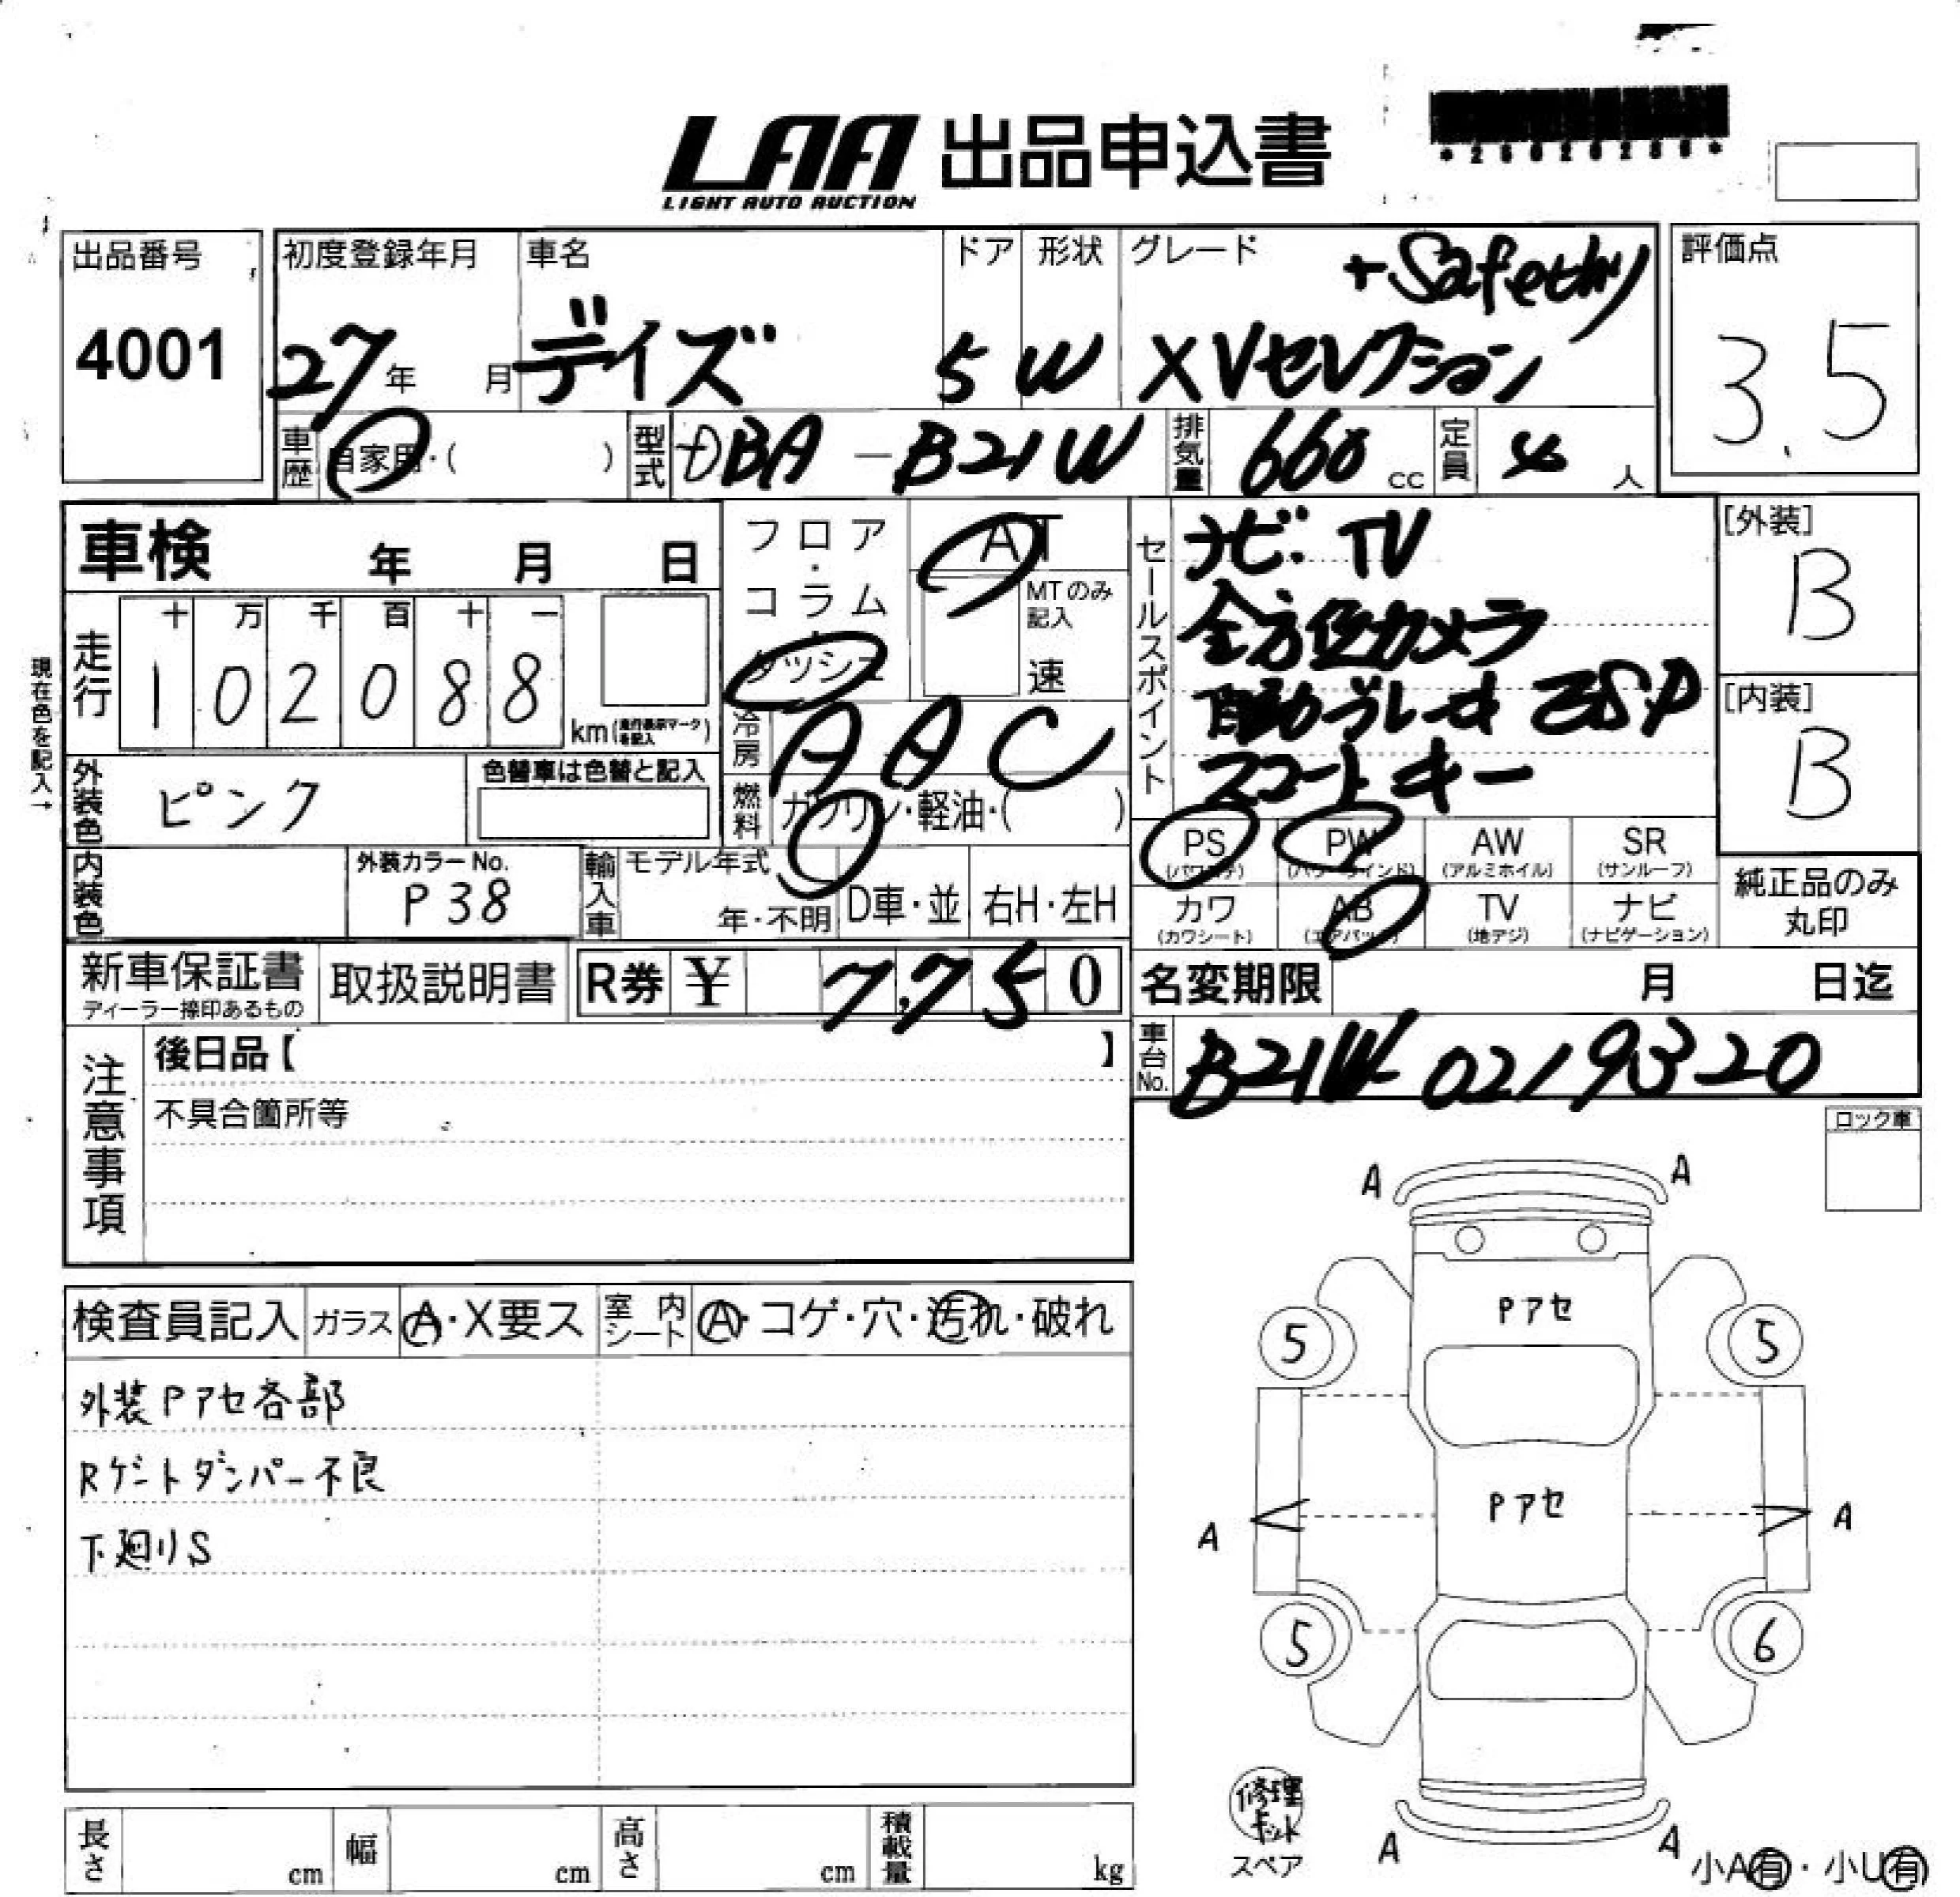 LAA 出品申込書
LIGHT AUTO AUCTION
出品番号 初度登録年月 車名 ドア 形状 グレード 評価点
+Safety
4001 27年 月 デイズ 5 W XVセレクション 3.5
車歴 自家用・( ) 型式 DBA-B21W 排気量 660 cc 定員 4 人
車検 年 月 日
フロア・コラム ダッシュ
AT
MTのみ記入
速
セールスポイント
ナビ・TV
全方位カメラ
自動ブレーキ ESP
スマートキー
[外装]
B
[内装]
B
現在色を記入→
走行 十 万 千 百 十 一
1 0 2 0 8 8 km(走行表示マークを記入)
冷房 AAC
外装色 ピンク 色替車は色替と記入
燃料 ガソリン・軽油・( )
PS PW AW SR
(パワステ) (パワーウインド) (アルミホイル) (サンルーフ)
カワ AB TV ナビ
(カワシート) (エアバック) (地デジ) (ナビゲーション)
純正品のみ
丸印
内装色 外装カラーNo.
P38
輸入車 モデル年式
年・不明 D車・並 右H・左H
新車保証書 取扱説明書 R券 ¥ 7,750
ディーラー捺印あるもの
名変期限 月 日迄
車台No. B21W-0219320
注意事項
後日品【 】
不具合箇所等
ロック車
検査員記入 ガラス A・X要ス 室内シート A・コゲ・穴・汚れ・破れ
外装Pアセ各部
Rゲートダンパー不良
下廻りS
A A
Pアセ
5 5
Pアセ
A A
5 6
修理
キット
スペア
A A
小A有・小U有
長さ cm 幅 cm 高さ cm 積載量 kg